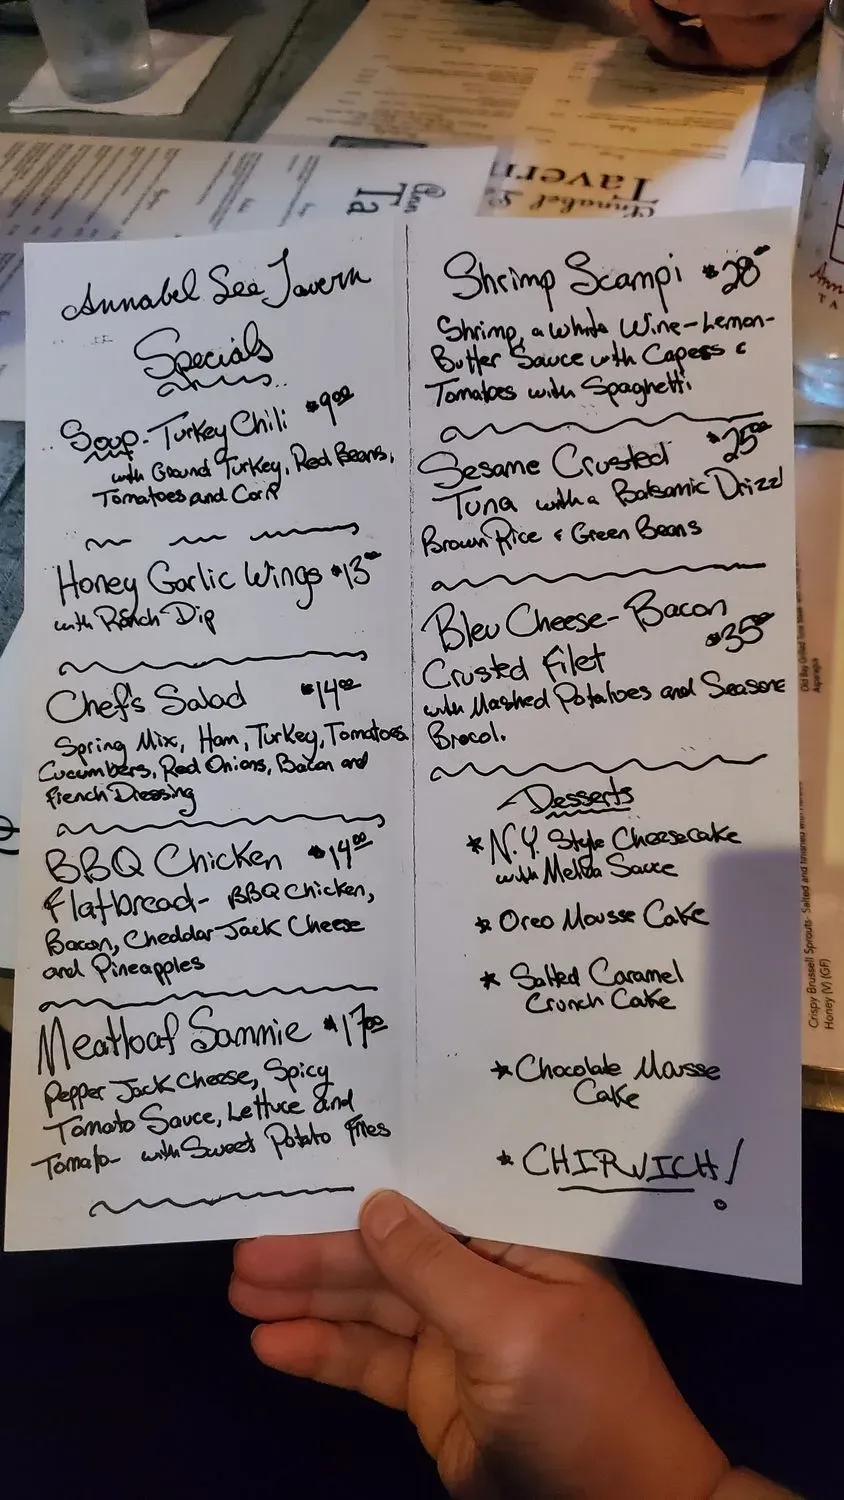 Annabel Lee Tavern
Specials
Soup - Turkey Chili $9.00
with Ground Turkey, Red Beans,
Tomatoes and Corn
Honey Garlic Wings $13.00
with Ranch Dip
Chef's Salad $14.00
Spring Mix, Ham, Turkey, Tomatoes,
Cucumbers, Red Onions, Bacon and
French Dressing
BBQ Chicken $14.00
Flatbread - BBQ Chicken,
Bacon, Cheddar Jack Cheese
and Pineapples
Meatloaf Sammie $17.00
Pepper Jack Cheese, Spicy
Tomato Sauce, Lettuce and
Tomato - with Sweet Potato Fries
Shrimp Scampi $28.00
Shrimp, a White Wine-Lemon-
Butter Sauce with Capers &
Tomatoes with Spaghetti
Sesame Crusted $25.00
Tuna with a Balsamic Drizzl
Brown Rice & Green Beans
Bleu Cheese - Bacon
Crusted Filet $35.00
with Mashed Potatoes and Seasone
Brocol.
Desserts
* N.Y. Style Cheesecake
with Melba Sauce
* Oreo Mousse Cake
* Salted Caramel
Crunch Cake
* Chocolate Mousse
Cake
* CHIRVICH!
Tavern
Annabel
Ta
Crispy Brussell Sprouts- Salted and finished with
Honey (V) (GF)
Asparagus
TA